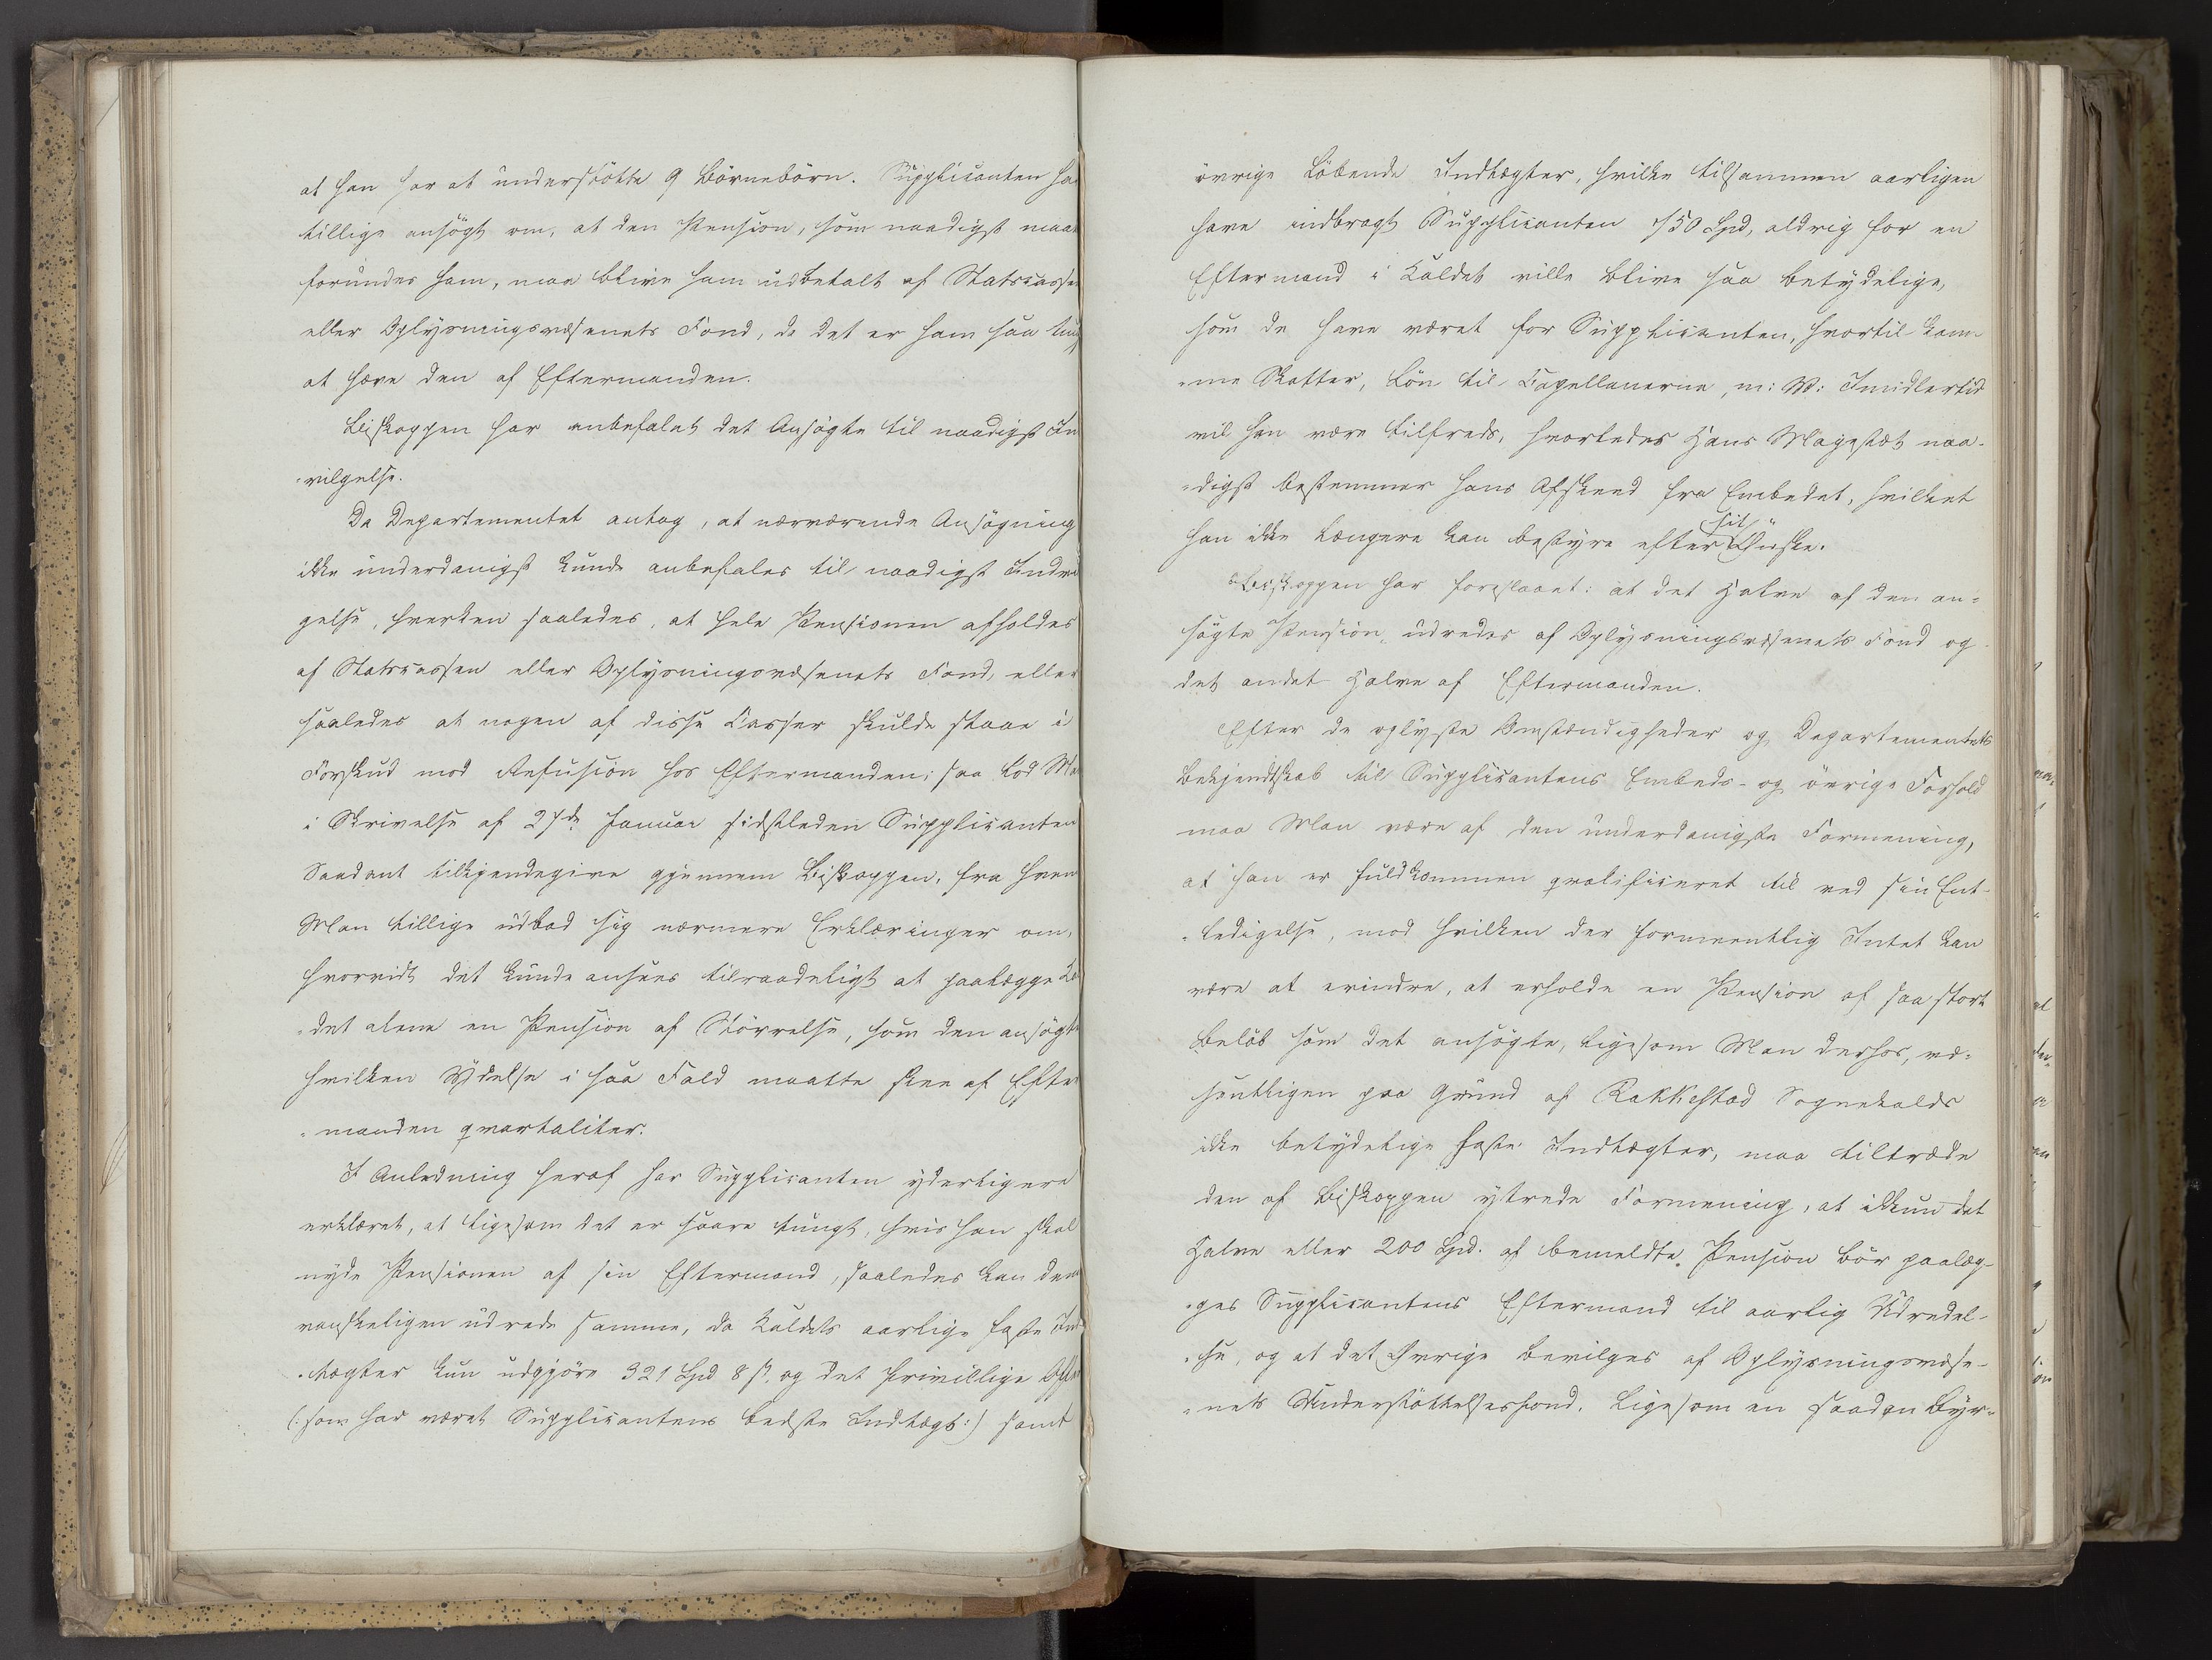 at han har at understötte 9 Börnebörn. Supplicanten ha
tillige ansögt om, at den Pension, som naadigst maat
forundes ham, maa blive ham udbetalt af Statscasse
eller Oplysningsvæsenets Fond, da det er ham saa tung
at hæve den af Eftermanden.
Biskoppen har anbefalet det Ansögte til naadigst Ind
-vilgelse.
Da Departementet antog, at nærværende Ansögning
ikke underdanigst kunde anbefales til naadigst Indvil
gelse, hverken saaledes, at hele Pensionen afholdes
af Statscassen eller Oplysningsvæsenets Fond, eller
saaledes at nogen af disse Casser skulde staae i
Forskud mod Refusion hos Eftermanden; saa lod Ma
i Skrivelse af 27de Januar sidstleden Supplicanten
Saadant tilkjendegive gjennem Biskoppen, fra hvem
Man tillige udbad sig nærmere Erklæringer om,
hvorvidt det kunde ansees tilraadeligt at paalægge Ka
-det alene en Pension af Störrelse, som den ansögte
hvilken Ydelse i saa Fald maatte skee af Efter
-manden qvartaliter.
I Anledning heraf har Supplicanten yderligere
erklæret, at ligesom det er saare tungt, hvis han skal
nyde Pensionen af sin Eftermand, saaledes kan denn
vanskeligen udrede samme, da Kaldets aarlige faste Ind
-tægter kun udgjöre 321 Spd 8 ß. og det frivillige Offer
(:som har været Supplicantens bedste Indtægt:) samt
övrige löbende Indtægter, hvilke tilsammen aarligen
have indbragt Supplicanten 750 Spd, aldrig for en
Eftermand i Kaldet ville blive saa betydelige,
som de have været for Supplicanten, hvortil kom-
-me Skatter, Lön til Capellanerne, m: V: Imidlertid
vil han være tilfreds, hvorledes Hans Majestæt naa-
-digst bestemmer hans Afskeed fra Embedet, hvilket
han ikke længere kan bestyre efter sit Önske.
Biskoppen har foreslaaet: at det Halve af den an-
sögte Pension udredes af Oplysningsvæsenets Fond og
det andet Halve af Eftermanden.
Efter de oplyste Omstændigheder og Departementets
Bekjendtskab til Supplicantens Embeds- og övrige Forhold
maa Man være af den underdanigste Formening,
at han er fuldkommen qvalificeret til ved sin Ent-
-ledigelse, mod hvilken der formeentlig Intet kan
være at erindre, at erholde en Pension af saa stort
Belöb som det ansögte, ligesom Man derhos, væ-
sentligen paa Grund af Rakkestad Sognekalds
ikke betydelige faste Indtægter, maa tiltræde
den af Biskoppen yttrede Formening, at ikkun det
Halve eller 200 Spd. af bemeldte Pension bör paalæg-
-ges Supplicantens Eftermand til aarlig Udredel-
-se, og at det Övrige bevilges af Oplysningsvæse-
-nets Understöttelsesfond. Ligesom en saadan Byr-